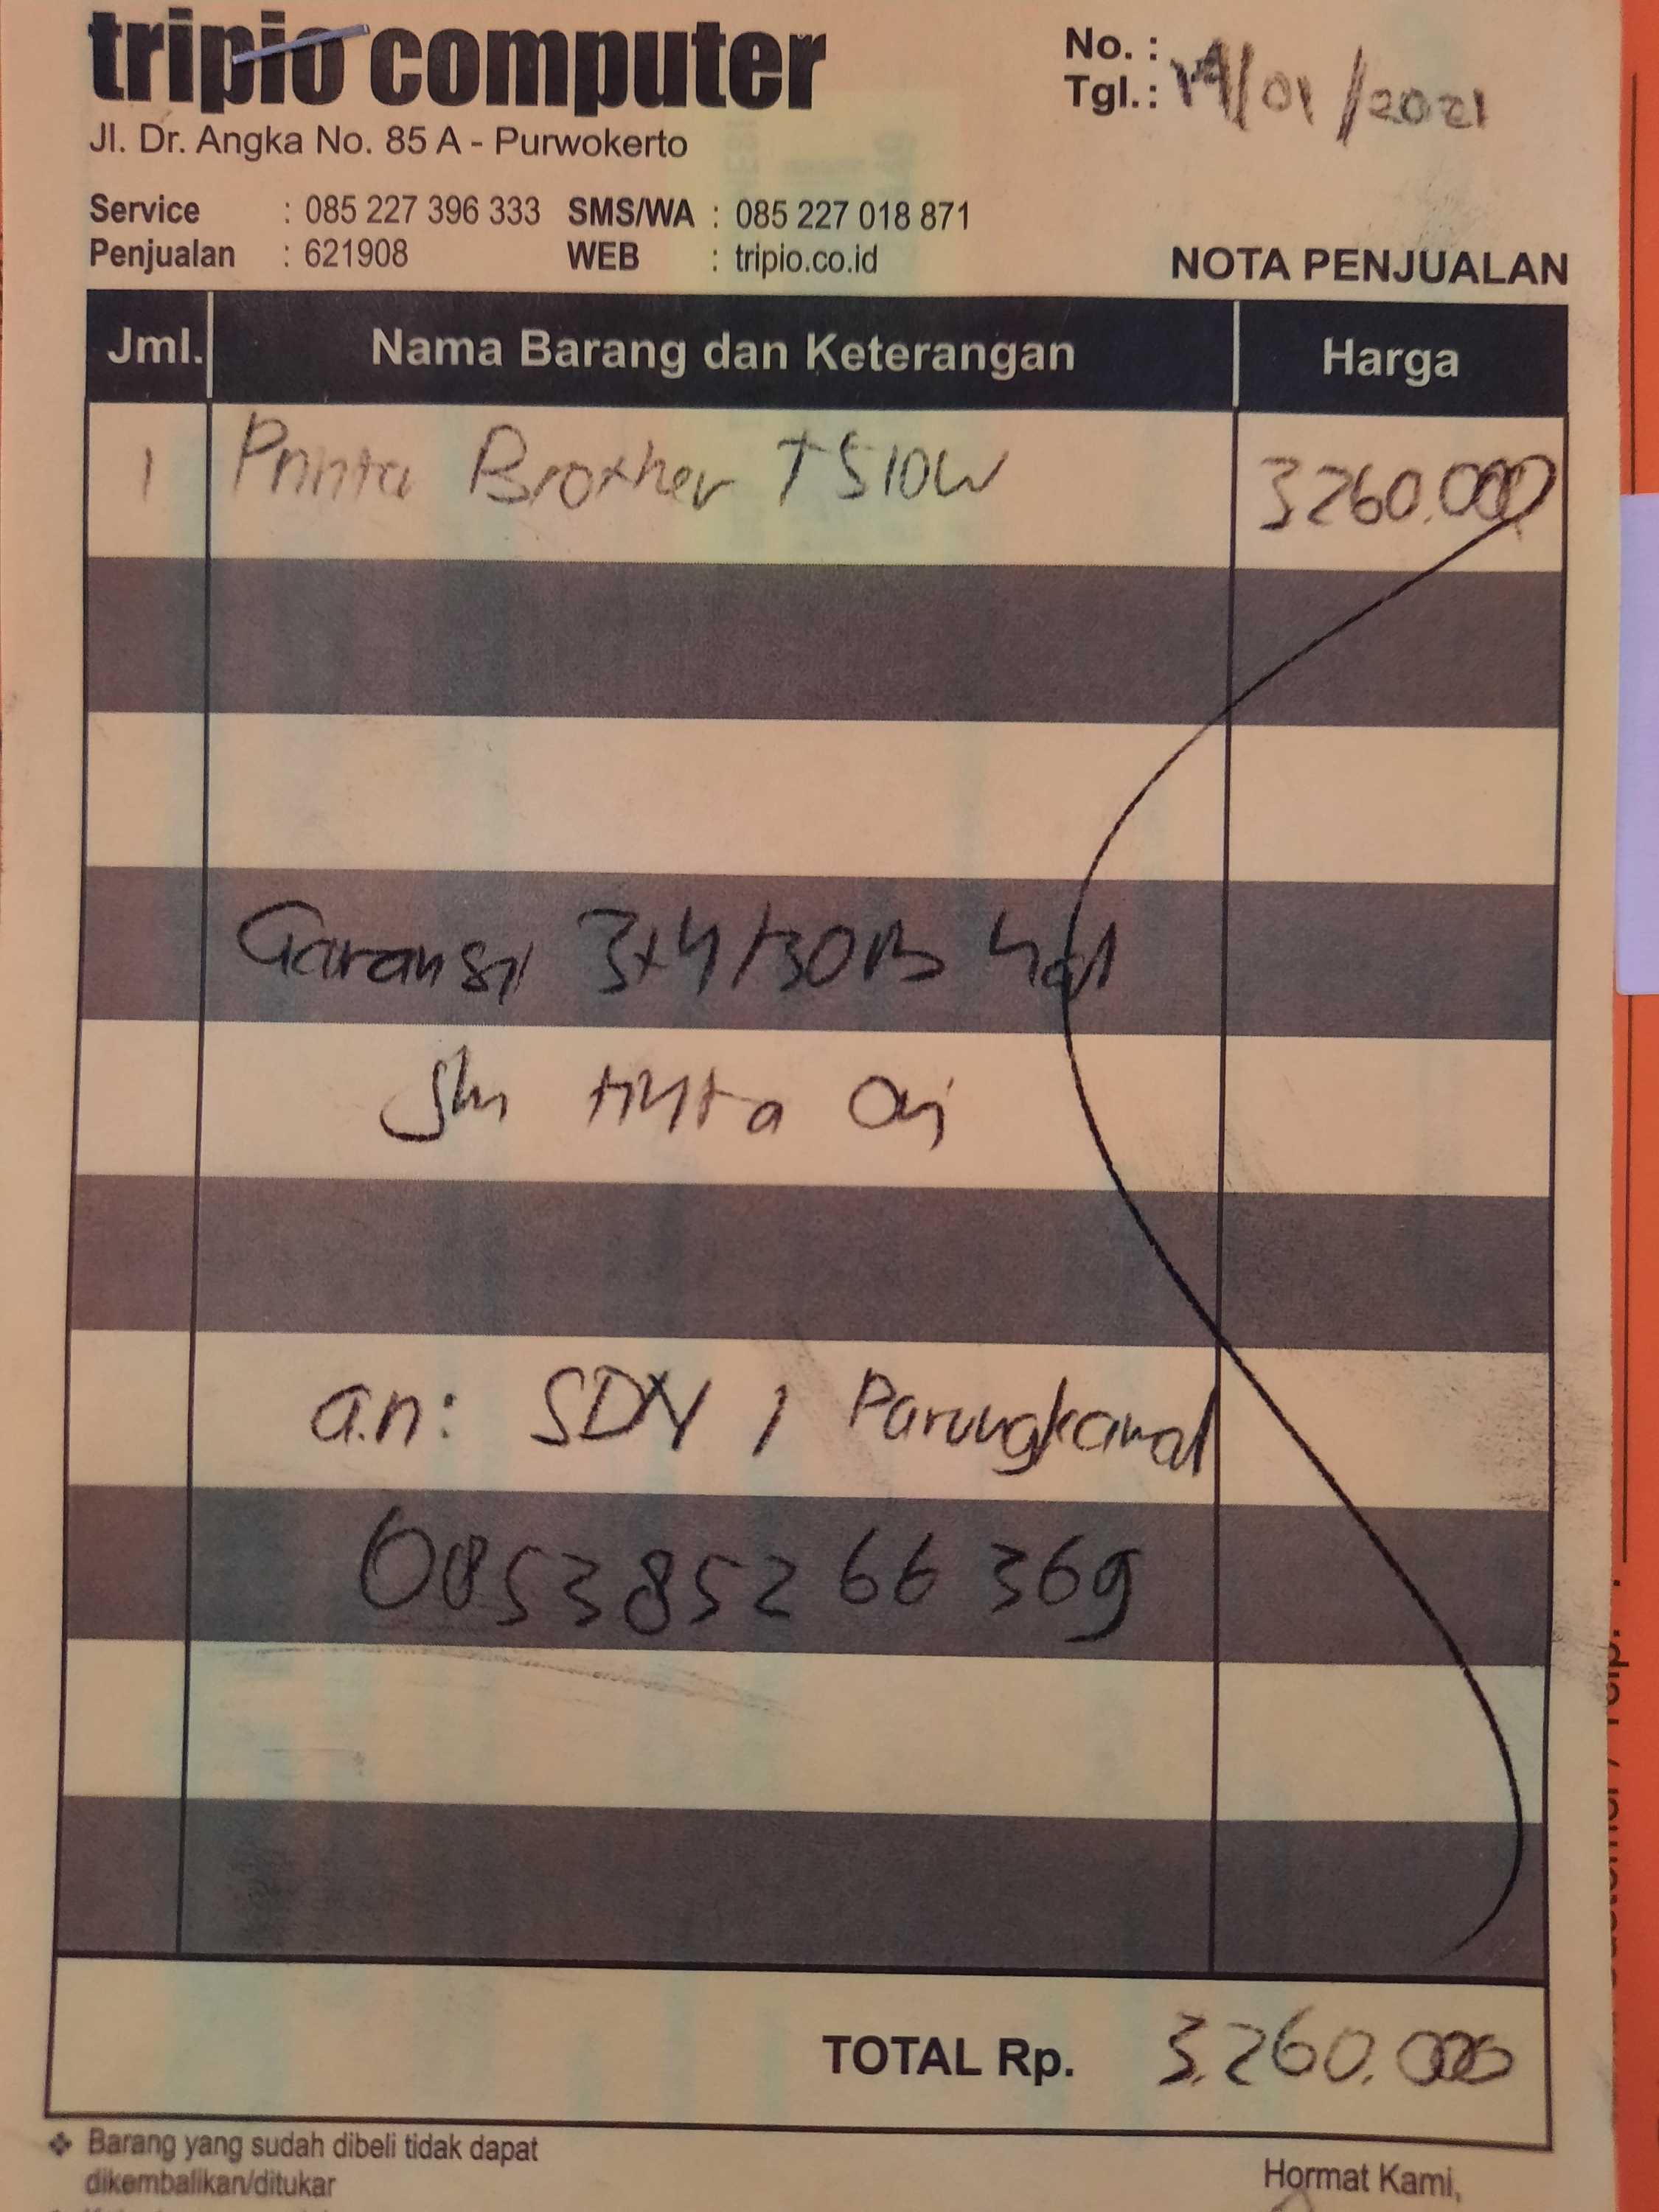 tripio computer
No. :
Tgl.: 14/01/2021
Jl. Dr. Angka No. 85 A - Purwokerto
Service : 085 227 396 333 SMS/WA : 085 227 018 871
Penjualan : 621908 WEB : tripio.co.id
NOTA PENJUALAN
Jml. Nama Barang dan Keterangan Harga
1 Printer Brother T510W 3260.000
Garansi 3th/30rb hal
tinta ori
a.n: SDN 1 Parungkamal
0853 852 66 369
TOTAL Rp. 3.260.000
❖ Barang yang sudah dibeli tidak dapat
dikembalikan/ditukar
Hormat Kami,